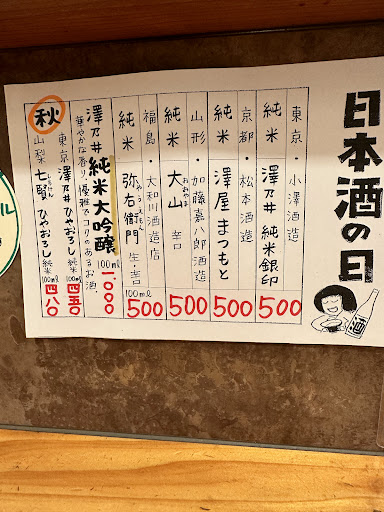 日本酒の日
東京・小澤酒造
純米 澤乃井 純米銀印
500
京都・松本酒造
純米 澤屋まつもと
500
山形・加藤嘉八郎酒造
純米 大山 辛口
おおやま
500
福島・大和川酒造店
純米 弥右衛門 生・辛口
やえもん
100ml
500
澤乃井 純米大吟醸
100ml
1,000
華やかな香り、優雅でコクのあるお酒。
秋
東京 澤乃井 ひやおろし 純米
100ml
450
山梨 七賢 ひやおろし 純米
しちけん
100ml
480
酒
ル